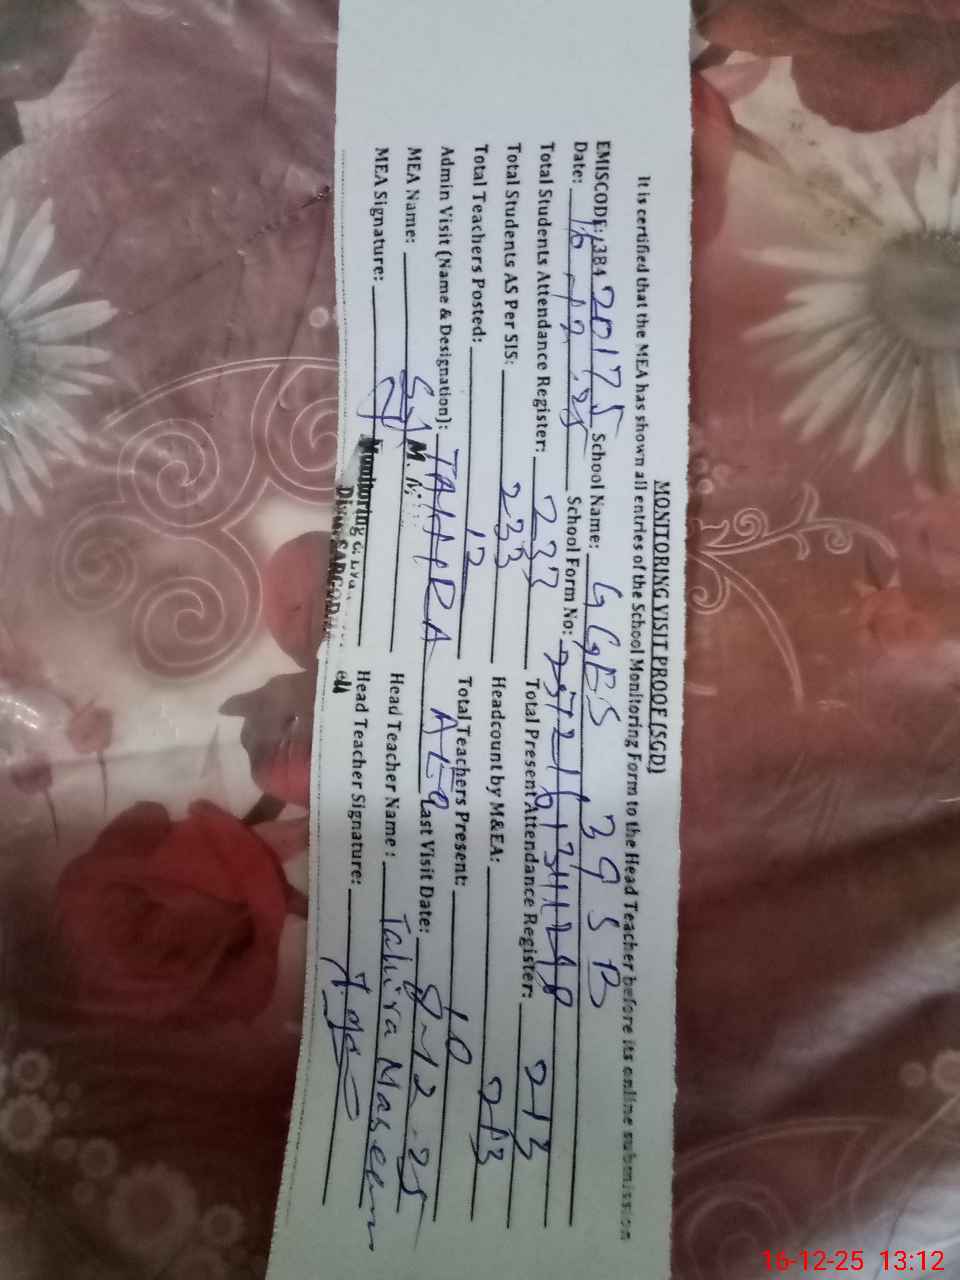 MONITORING VISIT PROOF (SGD)
It is certified that the MEA has shown all entries of the School Monitoring Form to the Head Teacher before its online submission
EMISCODE: 384 20175 School Name: GGES 39 SB
Date: 16-12-25 School Form No:
Total Students Attendance Register: 233 Total Present Attendance Register: 213
Total Students AS Per SIS: 233 Headcount by M&EA: 213
Total Teachers Posted: 12 Total Teachers Present: 10
Admin Visit (Name & Designation): TAHIRA AEO Last Visit Date: 8-12-25
MEA Name: Head Teacher Name: Tahira
MEA Signature: Head Teacher Signature:
Monitoring &
SARGODHA
16-12-25 13:12